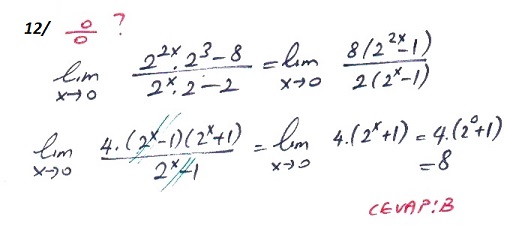 12/ 0/0 ?
lim x→0 (2^2x . 2^3 - 8)/(2^x . 2 - 2) = lim x→0 8(2^2x - 1)/2(2^x - 1)
lim x→0 4.(2^x - 1)(2^x + 1)/(2^x - 1) = lim x→0 4.(2^x + 1) = 4.(2^0 + 1)
= 8
CEVAP:B